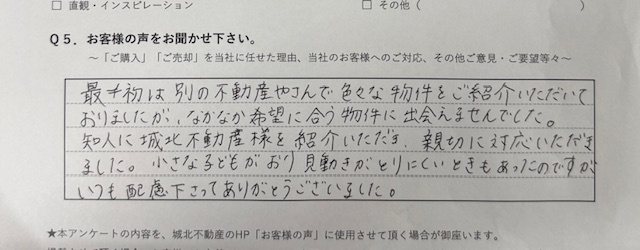 □ 直観・インスピレーション　□ その他（　　　）
Q5．お客様の声をお聞かせ下さい。
～「ご購入」「ご売却」を当社に任せた理由、当社のお客様へのご対応、その他ご意見・ご要望等々～
最初は別の不動産やさんで色々な物件をご紹介いただいて
おりましたが、なかなか希望に合う物件に出会えませんでした。
知人に城北不動産様を紹介いただき、親切に対応いただき
ました。小さな子どもがおり身動きがとりにくいときもあったのですが
いつも配慮下さってありがとうございました。
★本アンケートの内容を、城北不動産のHP「お客様の声」に使用させて頂く場合が御座います。